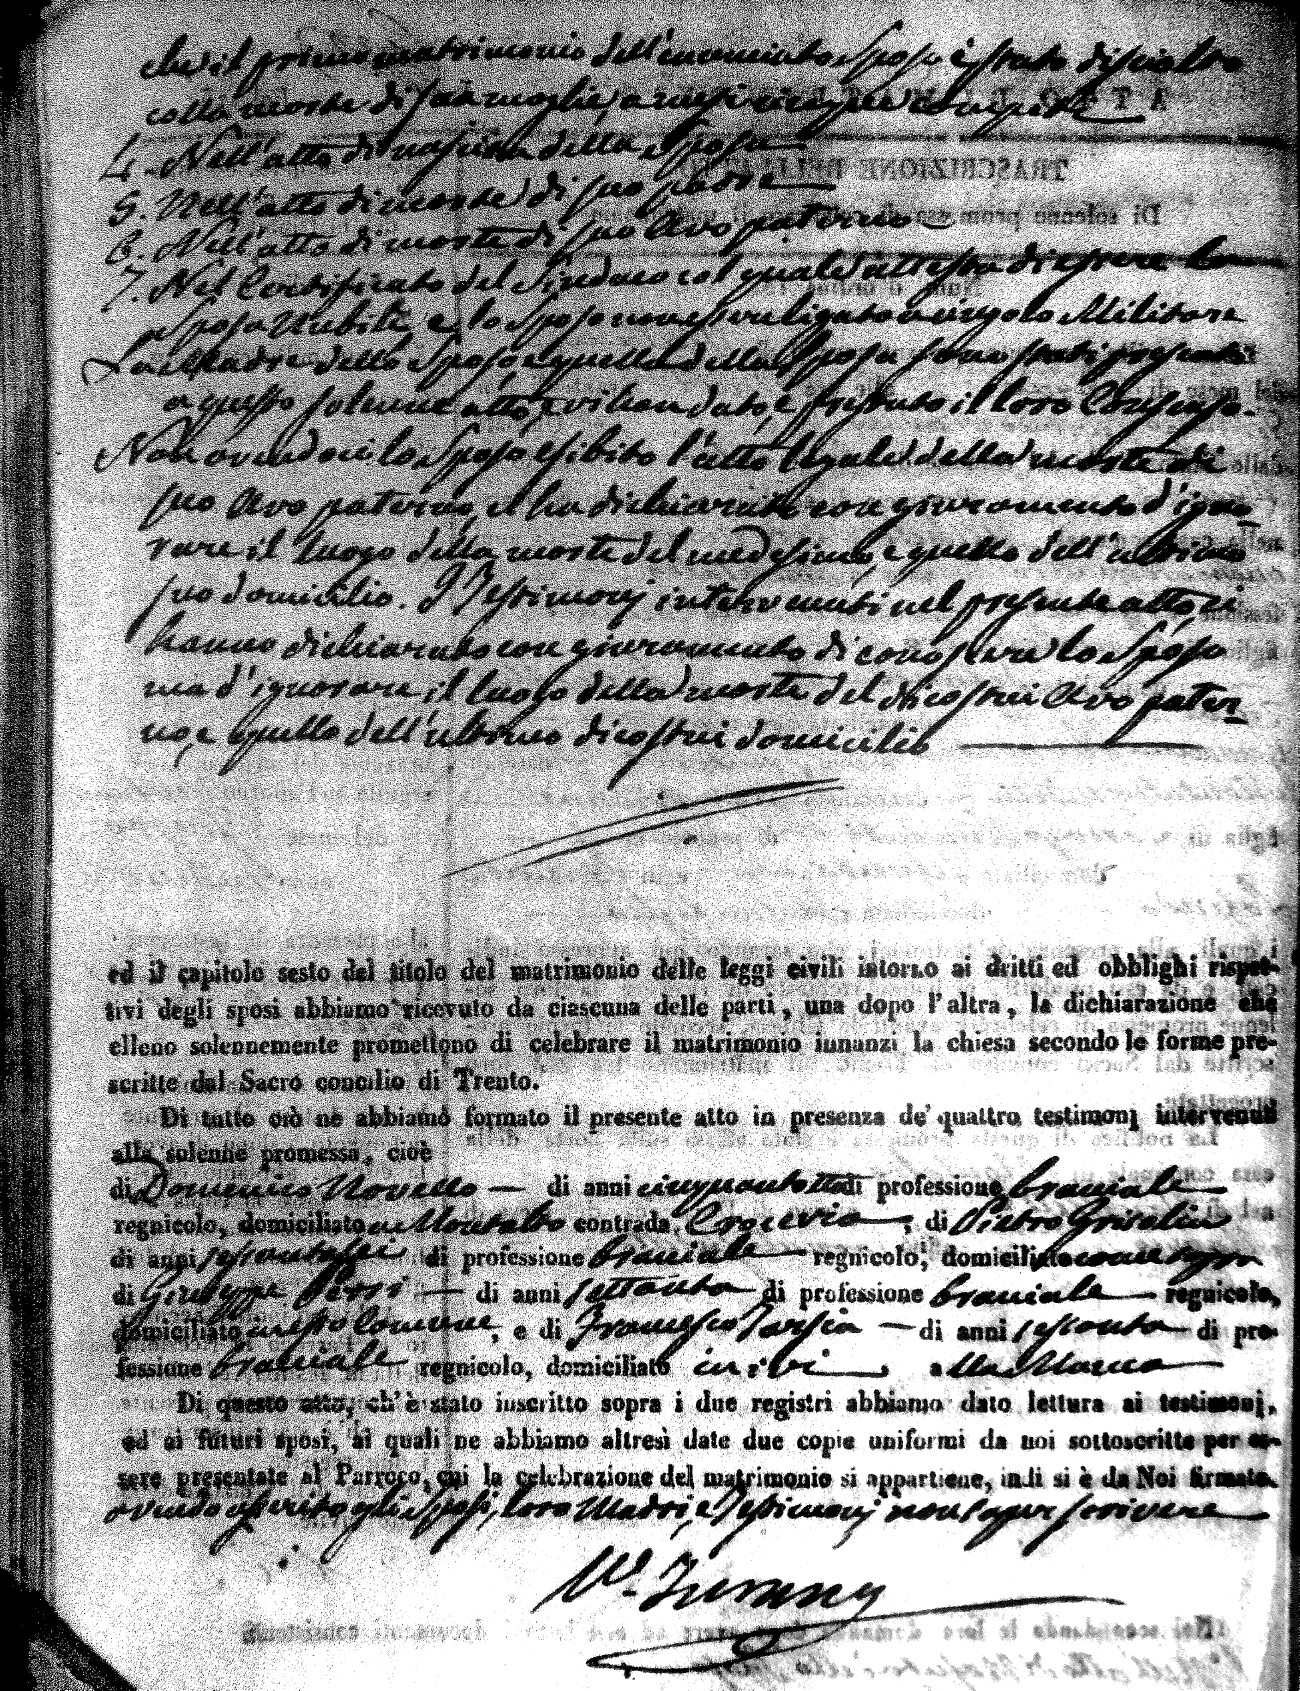 che il primo matrimonio dell'enunciato Sposo è stato disciolto
colla morte di sua moglie a mesi cinque compiti
4. Nell'atto di nascita della Sposa
5. Nell'atto di morte di suo padre
6. Nell'atto di morte di suo Avo paterno
7. Nel Certificato del Sindaco col quale attesta di essere la
Sposa Nubile, e lo Sposo non essere ligato a vincolo Militare
La Madre dello Sposo e quella della Sposa sono stati presenti
a questo solenne atto, e vi han dato, e prestato il loro Consenso.
Non avendoci lo Sposo esibito l'atto legale della morte di
suo Avo paterno, e ha dichiarato con giuramento d'igno-
rare il luogo della morte del medesimo, e quello dell'ultimo
suo domicilio. I Testimonj intervenuti nel presente atto, ci
hanno dichiarato con giuramento di conoscere lo Sposo
ma d'ignorare il luogo della morte del dicostui Avo pater-
no, e quello dell'ultimo dicostui domicilio
ed il capitolo sesto del titolo del matrimonio delle leggi civili intorno ai dritti ed obblighi rispet-
tivi degli sposi abbiamo ricevuto da ciascuna delle parti, una dopo l'altra, la dichiarazione che
elleno solennemente promettono di celebrare il matrimonio innanzi la chiesa secondo le forme pre-
scritte dal Sacro concilio di Trento.
Di tutto ciò ne abbiamo formato il presente atto in presenza de' quattro testimonj intervenuti
alla solenne promessa, cioè
di Domenico Novello — di anni cinquantotto di professione bracciale
regnicolo, domiciliato in Montalto contrada Crocevia, di Pietro Grisolia
di anni sessantasei di professione bracciale regnicolo, domiciliato come sopra
di Giuseppe Perri — di anni settanta di professione bracciale — regnicolo,
domiciliato in esto Comune, e di Francesco Tarsia — di anni sessanta di pro-
fessione bracciale regnicolo, domiciliato in ivi alla Manca
Di questo atto, ch'è stato inscritto sopra i due registri abbiamo dato lettura ai testimonj,
ed ai futuri sposi, ai quali ne abbiamo altresì date due copie uniformi da noi sottoscritte per es-
sere presentate al Parroco, cui la celebrazione del matrimonio si appartiene, indi si è da Noi firmato
avendo asserito gli Sposi, loro Madri, e Testimonj non saper scrivere